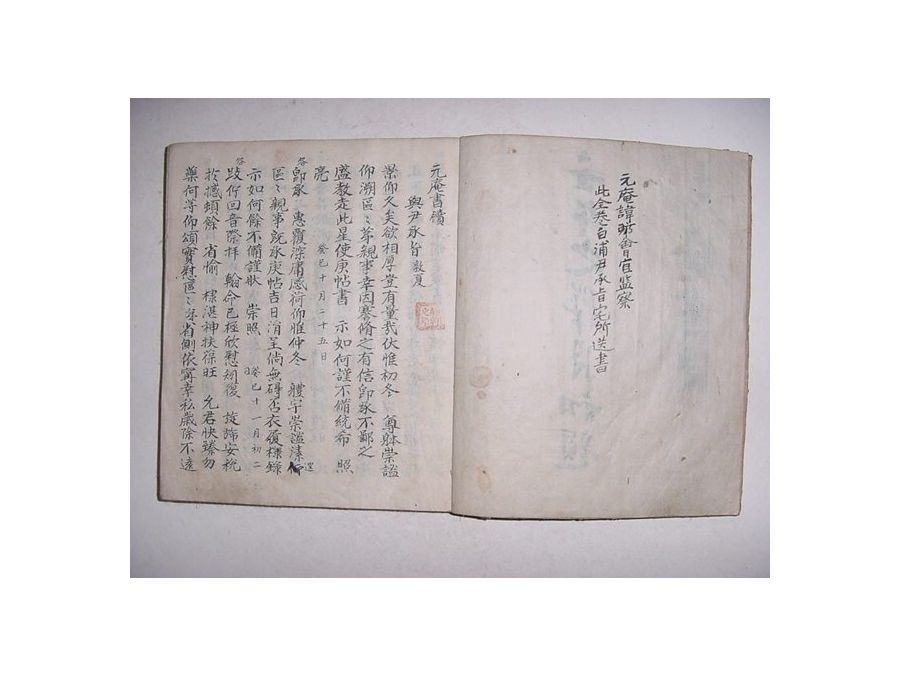 元庵諱 會官監察
此全卷白浦尹承旨宅所送書
元庵書牘
與尹承旨 夏
景仰久矣欲相厚豈有量哉伏惟初冬 尊躰崇謐
仰溯區〻等親事幸因蹇脩之有信即承不鄙之
盛教走此星使庚帖書 示如何謹不備統希 照
亮 癸巳十月二十五日
答 即承 惠覆深庸感荷仰惟仲冬 軆宇崇謐溱仰
區〻親事既承庚帖吉日涓呈倘無碍否衣 樣錄
示如何餘不備謹狀 崇照 癸巳十一月初二
答 跂 何回音際拜 翰命已極欣慰 復 旋 安稅
於撼頓餘 省愉 棣湛神扶葆旺 允君快臻勿
藥何等仰頌實慰區〻弟省側依寧幸私歲除不遠